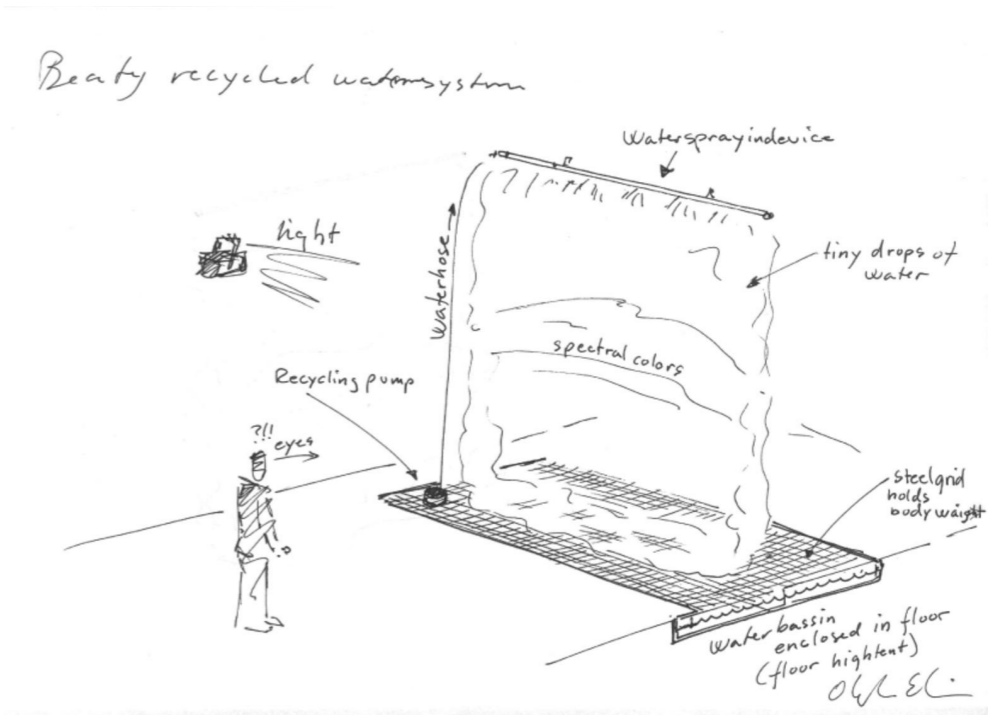 Beaty recycled watersystem
Watersprayindevice
light
tiny drops of
water
Waterhose
spectral colors
Recycling pump
?!!
eyes
steelgrid
holds
body waight
water bassin
enclosed in floor
(floor hightent)